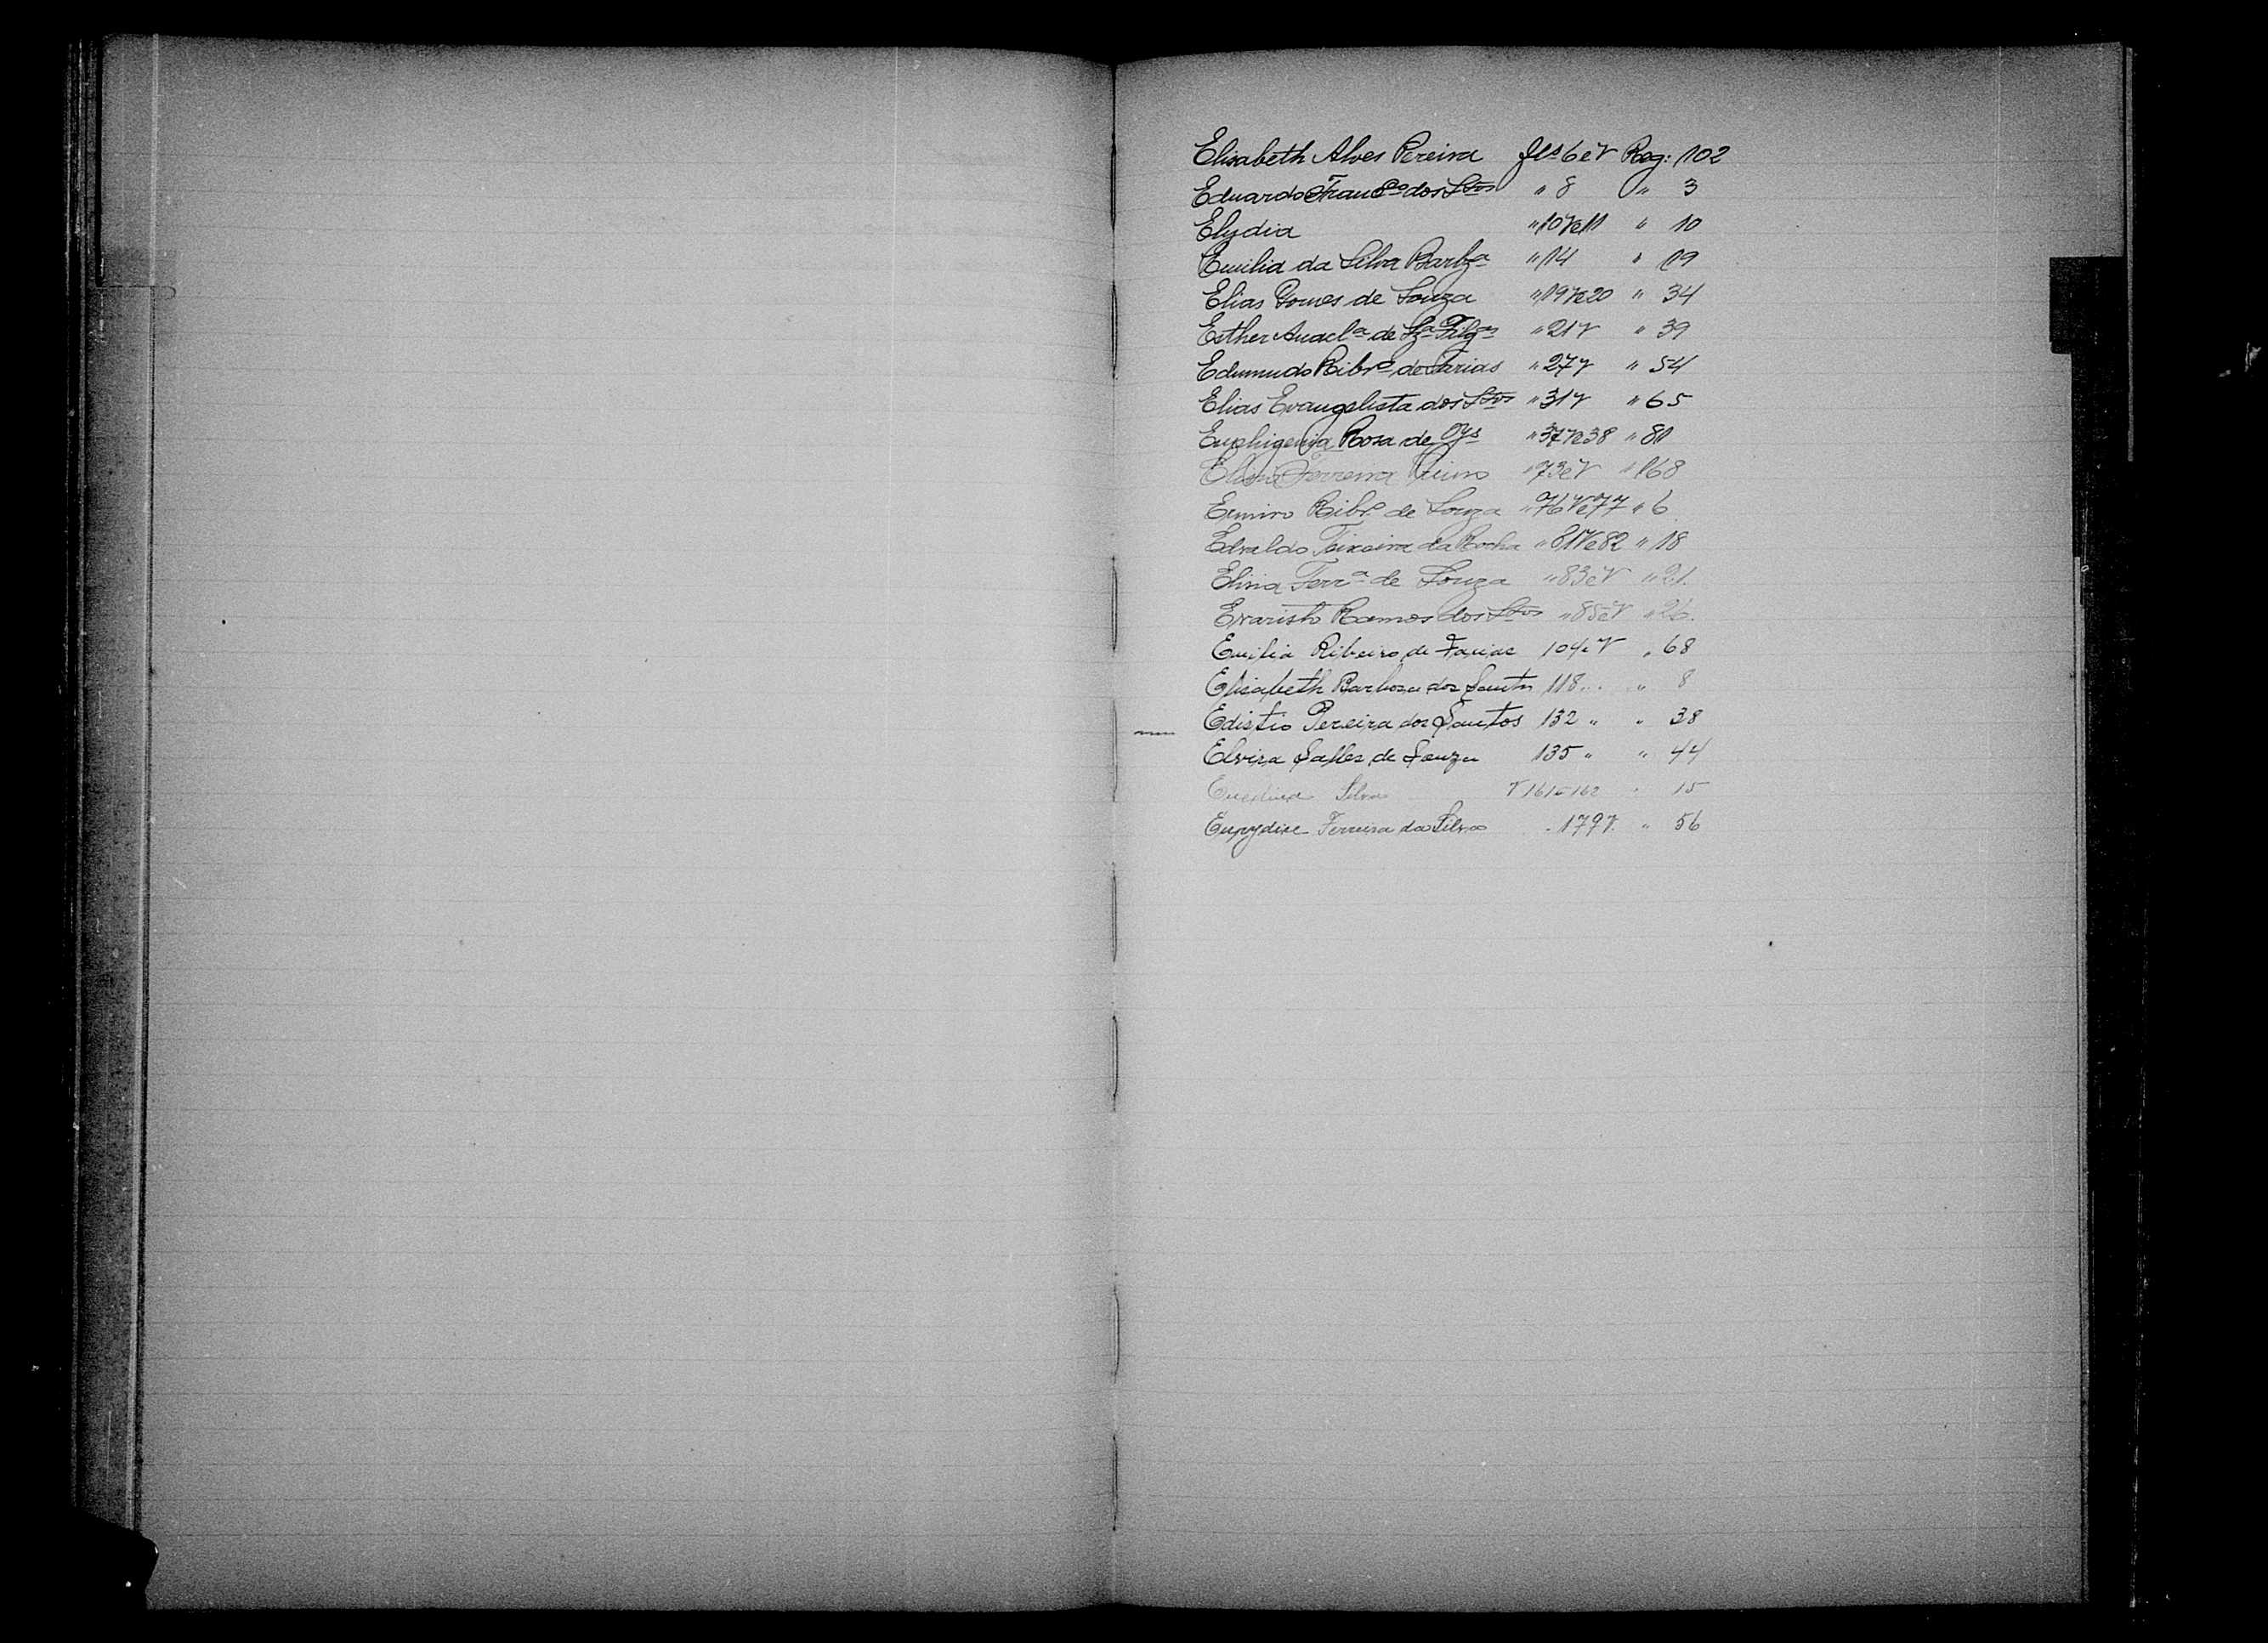 Elisabeth Alves Pereira fls 6 e v Reg: 102
Eduardo Franco dos Stos " 8 " 3
Elydia " 10 v e 11 " 10
Emilia da Silva Barbza " 14 " 19
Elias Gomes de Souza " 19 v e 20 " 34
Esther Anacla de Sza Filgas " 21 v " 39
Edumudo Ribro de Farias " 27 v " 54
Elias Evangelista dos Stos " 31 v " 65
Euphigenia Rosa de " 37 v e 38 " 81
Ferreira " 73 e v " 168
Ermiro Ribro de Souza " 76 v e 77 " 6
Edvaldo Teixeira da Rocha " 81 v e 82 " 18
Elisia Ferra de Souza " 83 e v " 21.
Evaristo Ramos dos Stos " 85 e v " 26.
Emilia Ribeiro de Farias 104 e v " 68
Elisabeth Barbosa dos Santos 118 " " 8
Edistio Pereira dos Santos 132 " " 38
Elvira Salles de Souza 135 " " 44
Silva v 161 e 162 " 15
Eurydice Ferreira da Silva " 179 v. " 56